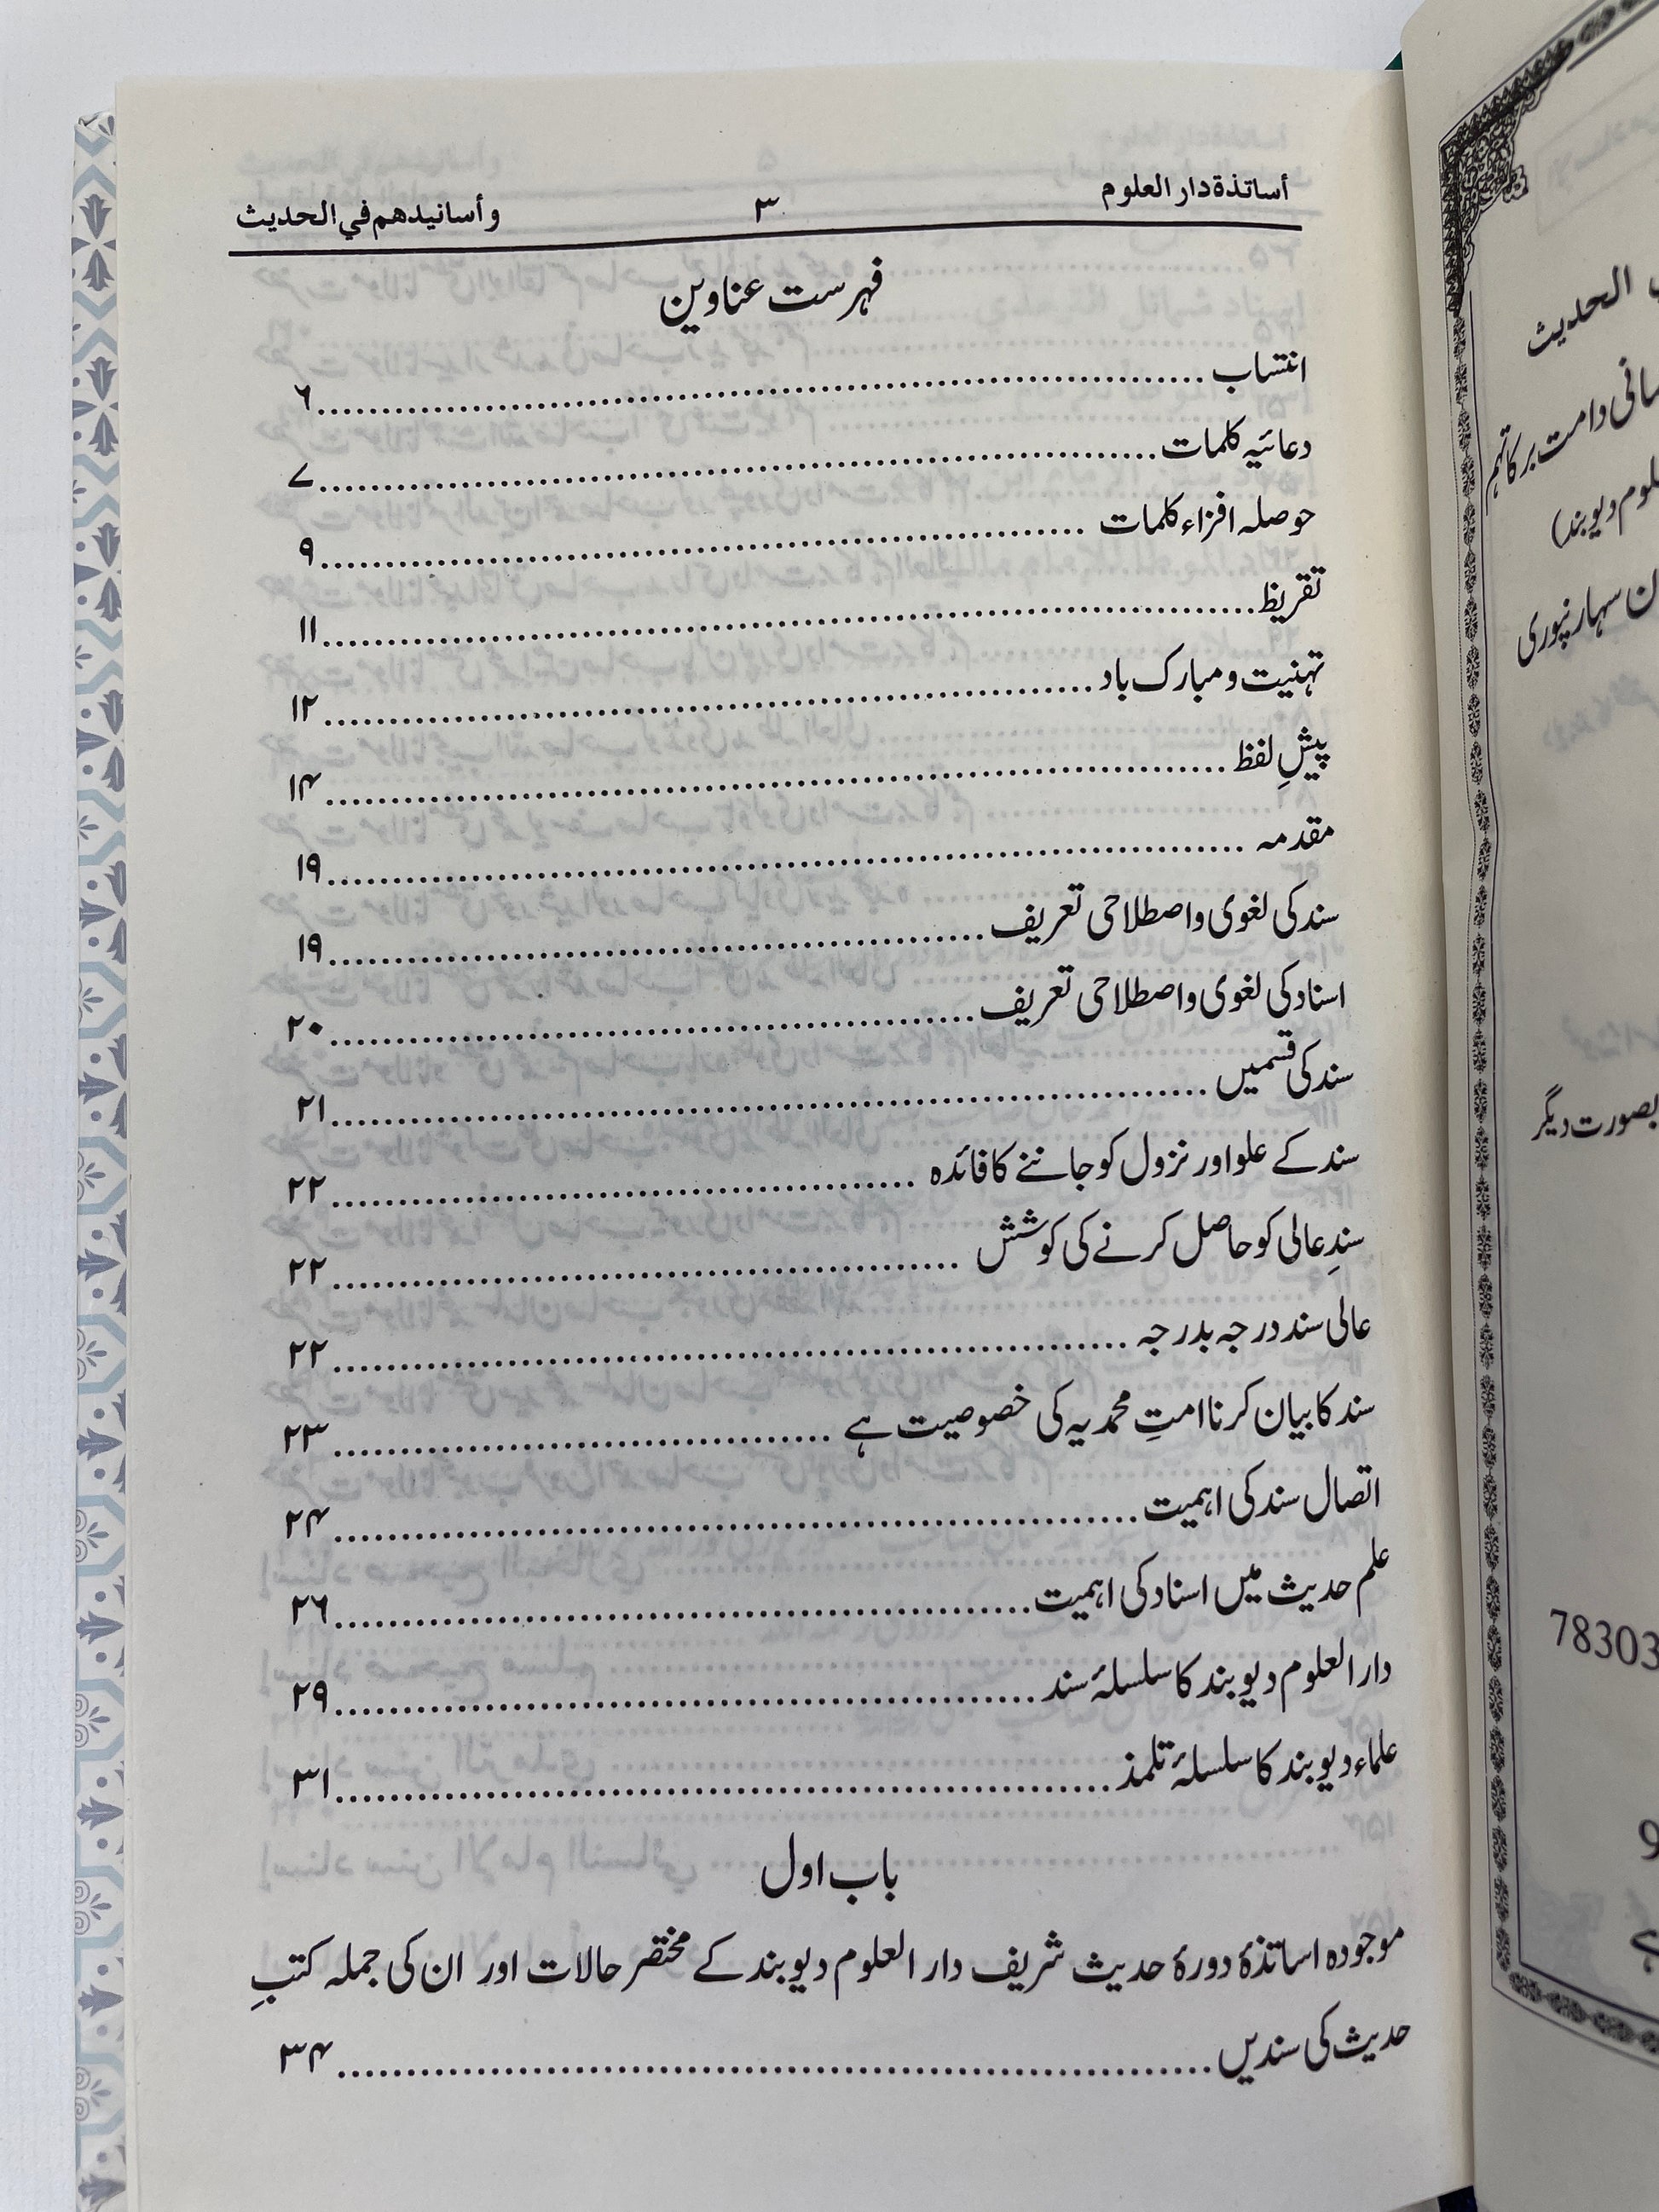 أساتذة دار العلوم ۳ وأسانيدهم في الحديث
فہرست عناوین
انتساب ........ ۶
دعائیہ کلمات ........ ۷
حوصلہ افزاء کلمات ........ ۹
تقریظ ........ ۱۱
تہنیت و مبارک باد ........ ۱۲
پیشِ لفظ ........ ۱۴
مقدمہ ........ ۱۹
سند کی لغوی و اصطلاحی تعریف ........ ۱۹
اسناد کی لغوی و اصطلاحی تعریف ........ ۲۰
سند کی قسمیں ........ ۲۱
سند کے علو اور نزول کو جاننے کا فائدہ ........ ۲۲
سندِ عالی کو حاصل کرنے کی کوشش ........ ۲۲
عالی سند درجہ بدرجہ ........ ۲۲
سند کا بیان کرنا امتِ محمدیہ کی خصوصیت ہے ........ ۲۳
اتصال سند کی اہمیت ........ ۲۴
علم حدیث میں اسناد کی اہمیت ........ ۲۶
دار العلوم دیوبند کا سلسلۂ سند ........ ۲۹
علماء دیوبند کا سلسلۂ تلمذ ........ ۳۱
باب اول
موجودہ اساتذۂ دورۂ حدیث شریف دار العلوم دیوبند کے مختصر حالات اور ان کی جملہ کتبِ
حدیث کی سندیں ........ ۳۴
الحدیث
دامت برکاتہم
دیوبند)
سہارنپوری
بصورت دیگر
78303
9